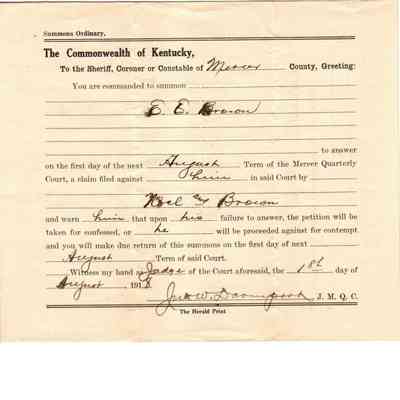 Summons Ordinary,
The Commonwealth of Kentucky,
To the Sheriff, Coroner or Constable of Mercer County, Greeting:
You are commanded to summon
E. E. Brown
to answer
on the first day of the next August Term of the Mercer Quarterly
Court, a claim filed against him in said Court by
Noel Brown
and warn him that upon his failure to answer, the petition will be
taken for confessed, or he will be proceeded against for contempt
and you will make due return of this summons on the first day of next
August Term of said Court.
Witness my hand as Judge of the Court aforesaid, the day of
August 191
W. J. M. Q. C.
The Herald Print